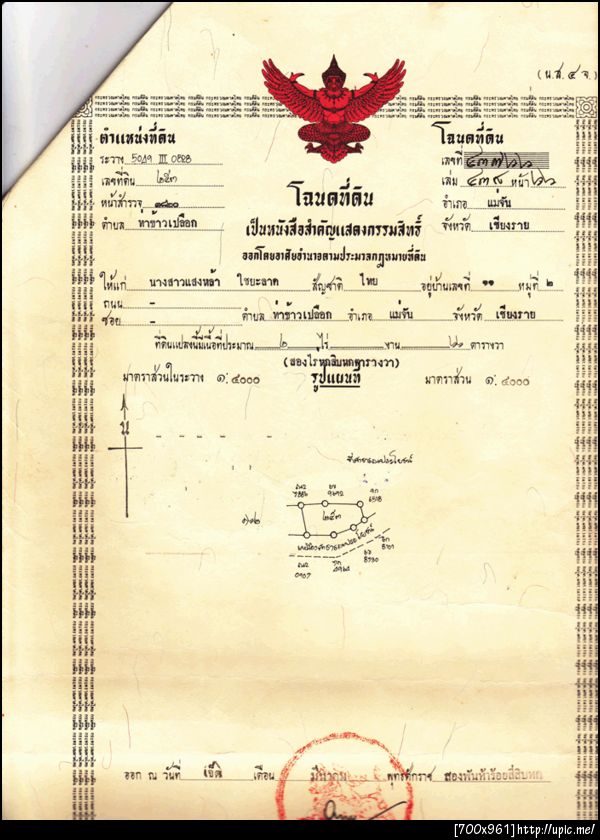 (น.ส.๔ จ.)
ตำแหน่งที่ดิน
ระวาง 5049 III 0828
เลขที่ดิน ๒๕๓
หน้าสำรวจ
ตำบล ท่าข้าวเปลือก
โฉนดที่ดิน
เลขที่ ๔๓๗๖๖
เล่ม ๔๓๘ หน้า ๖๖
อำเภอ แม่จัน
จังหวัด เชียงราย
โฉนดที่ดิน
เป็นหนังสือสำคัญแสดงกรรมสิทธิ์
ออกโดยอาศัยอำนาจตามประมวลกฎหมายที่ดิน
ให้แก่ นางสาวแสงหล้า ไชยะลาด สัญชาติ ไทย อยู่บ้านเลขที่ ๑๑ หมู่ที่ ๒
ถนน - ตำบล ท่าข้าวเปลือก อำเภอ แม่จัน จังหวัด เชียงราย
ซอย -
ที่ดินแปลงนี้มีเนื้อที่ประมาณ ๒ ไร่ - งาน ๖๐ ตารางวา
(สองไร่หกสิบหกตารางวา)
มาตราส่วนในระวาง ๑:๔๐๐๐ รูปแผนที่ มาตราส่วน ๑:๔๐๐๐
น
ที่สาธารณประโยชน์
9692
6518
๒๕๓
๑๗๒
8730
0907
ออก ณ วันที่ เจ็ด เดือน มีนาคม พุทธศักราช สองพันห้าร้อยสี่สิบหก
[700x961]http://upic.me/